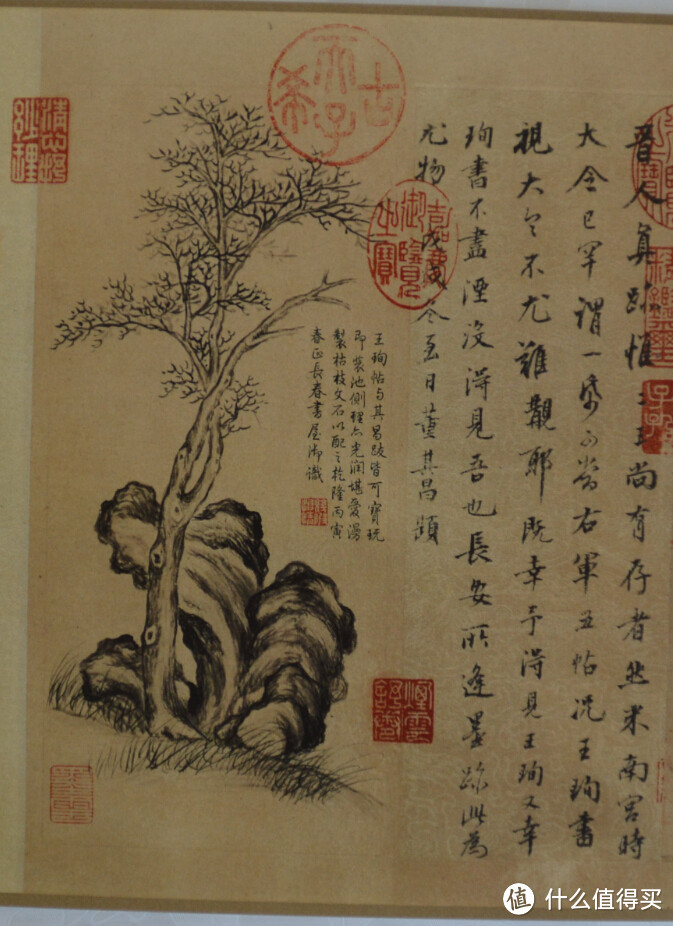 晉人真跡惟二王尚有存者然米南宮時
大令已罕謂一帋可當右軍五帖況王珣書
視大令不尤難覯耶既幸予得見王珣又幸
珣書不盡湮沒得見吾也長安所逢墨跡此為
尤物 戊戌冬至日董其昌題
古希天子
嘉慶御覽之寶
王珣帖与其昌跋皆可寶玩
即裝池側理亦光潤堪愛漫
製枯枝文石以配之乾隆丙寅
春正長春書屋御識
值 什么值得买